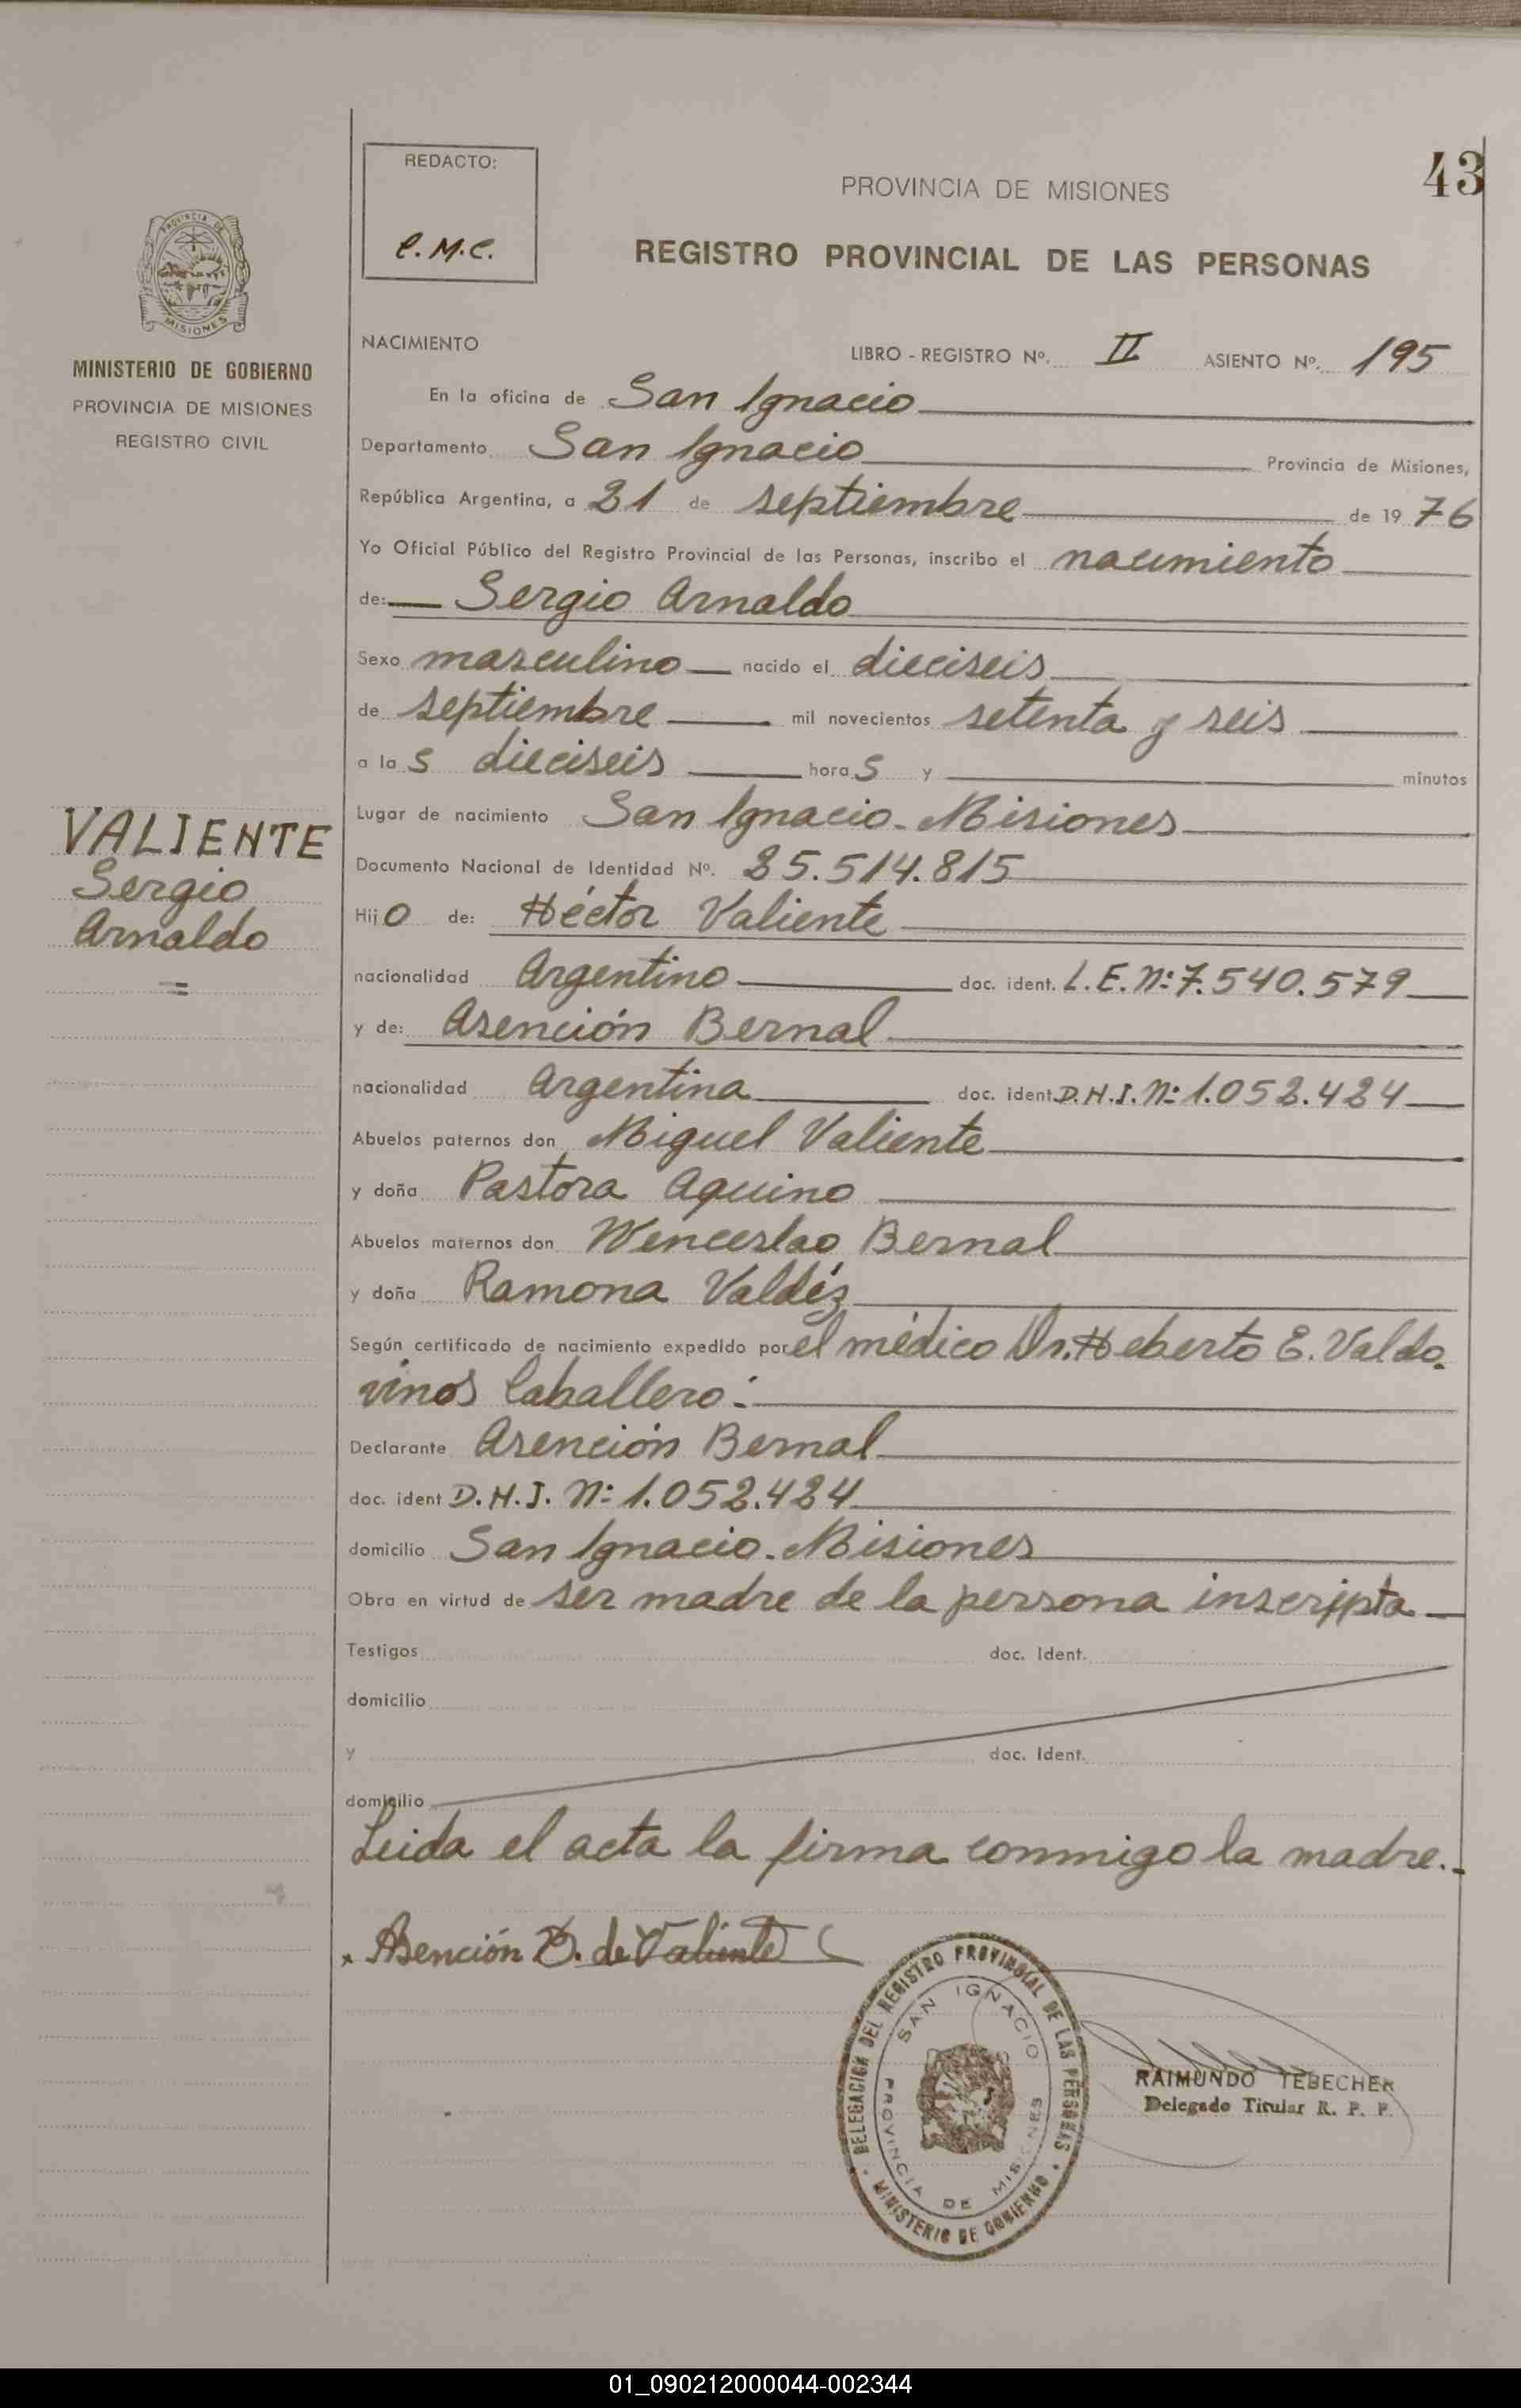 REDACTO:
C.M.C.
43
PROVINCIA DE MISIONES
REGISTRO PROVINCIAL DE LAS PERSONAS
PROVINCIA DE
MISIONES
MINISTERIO DE GOBIERNO
PROVINCIA DE MISIONES
REGISTRO CIVIL
VALIENTE
Sergio
Arnaldo
=
NACIMIENTO
LIBRO - REGISTRO Nº. II ASIENTO Nº. 195
En la oficina de San Ignacio
Departamento San Ignacio Provincia de Misiones,
República Argentina, a 21 de septiembre de 1976
Yo Oficial Público del Registro Provincial de las Personas, inscribo el nacimiento
de: Sergio Arnaldo
Sexo masculino nacido el dieciseis
de septiembre mil novecientos setenta y seis
a las dieciseis horas y minutos
Lugar de nacimiento San Ignacio - Misiones
Documento Nacional de Identidad Nº. 25.514.815
Hijo de: Héctor Valiente
nacionalidad Argentino doc. ident. L.E. Nº: 7.540.579
y de: Asención Bernal
nacionalidad Argentina doc. ident. D.N.I. Nº: 1.052.424
Abuelos paternos don Miguel Valiente
y doña Pastora Aquino
Abuelos maternos don Wenceslao Bernal
y doña Ramona Valdéz
Según certificado de nacimiento expedido por el médico Dr. Heberto E. Valdo-
vinos Caballero.-
Declarante Asención Bernal
doc. ident D.N.I. Nº: 1.052.424
domicilio San Ignacio - Misiones
Obra en virtud de ser madre de la persona inscripta
Testigos doc. Ident.
domicilio
y doc. Ident.
domicilio
Leida el acta la firma conmigo la madre.-
x Asención B. de Valiente
DELEGACION DEL REGISTRO PROVINCIAL DE LAS PERSONAS
SAN IGNACIO
PROVINCIA DE MISIONES
MINISTERIO DE GOBIERNO
RAIMUNDO TEBECHER
Delegado Titular R. P. P.
01_090212000044-002344